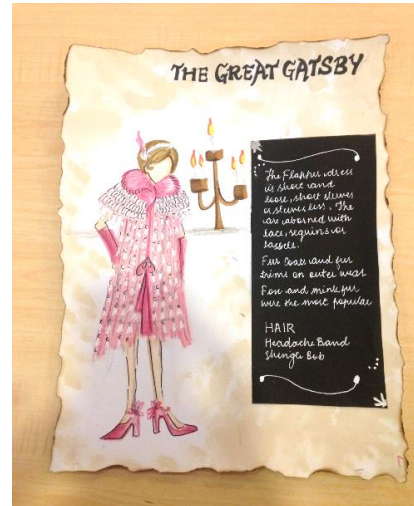 THE GREAT GATSBY
The Flapper dress
is short and
loose, short sleeves
or sleeves less. The
are adorned with
lace, sequins or
tassels.
Fur Coats and fur
trims on outer wear
Fox and mink fur
were the most popular
HAIR
Headache Band
Shingle Bob